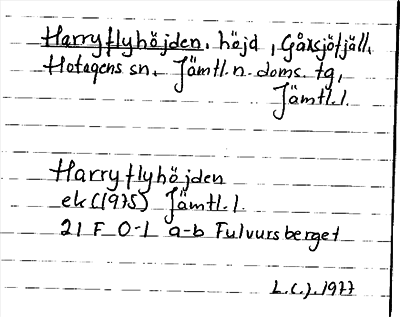 Harryflyhöjden, höjd, Gåxsjöfjäll,
Hotagens sn. Jämtl. n. doms. tg,
Jämtl. l.
Harryflyhöjden
ek (1975) Jämtl. l.
21 F 0-1 a-b Fulvursberget
L.C.J. 1977